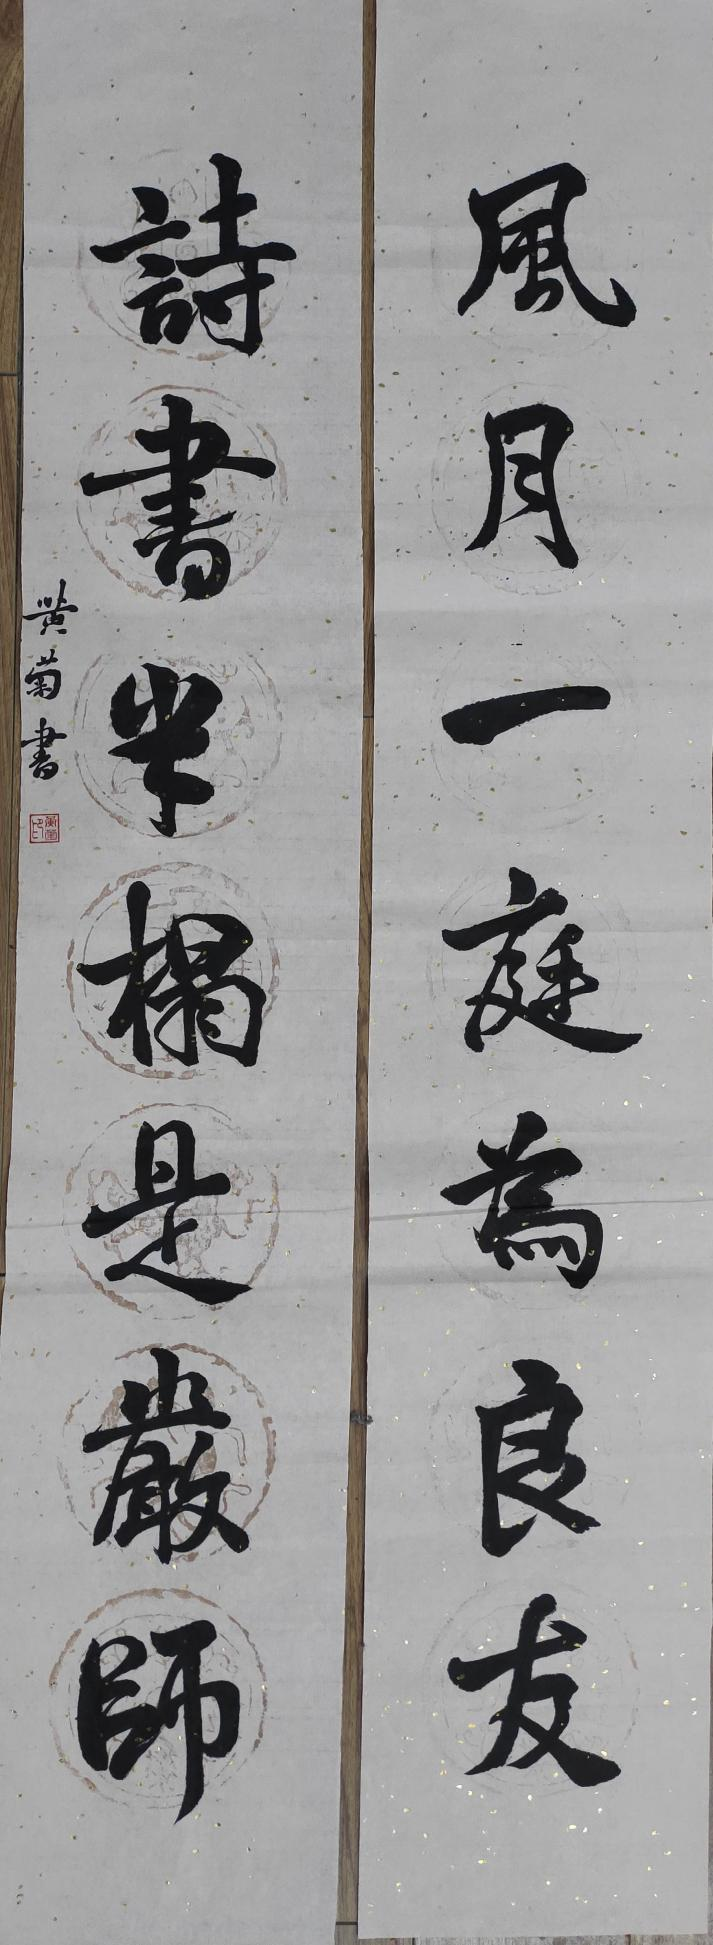 風月一庭為良友
詩書半榻是嚴師
黄菊書
黄菊之印